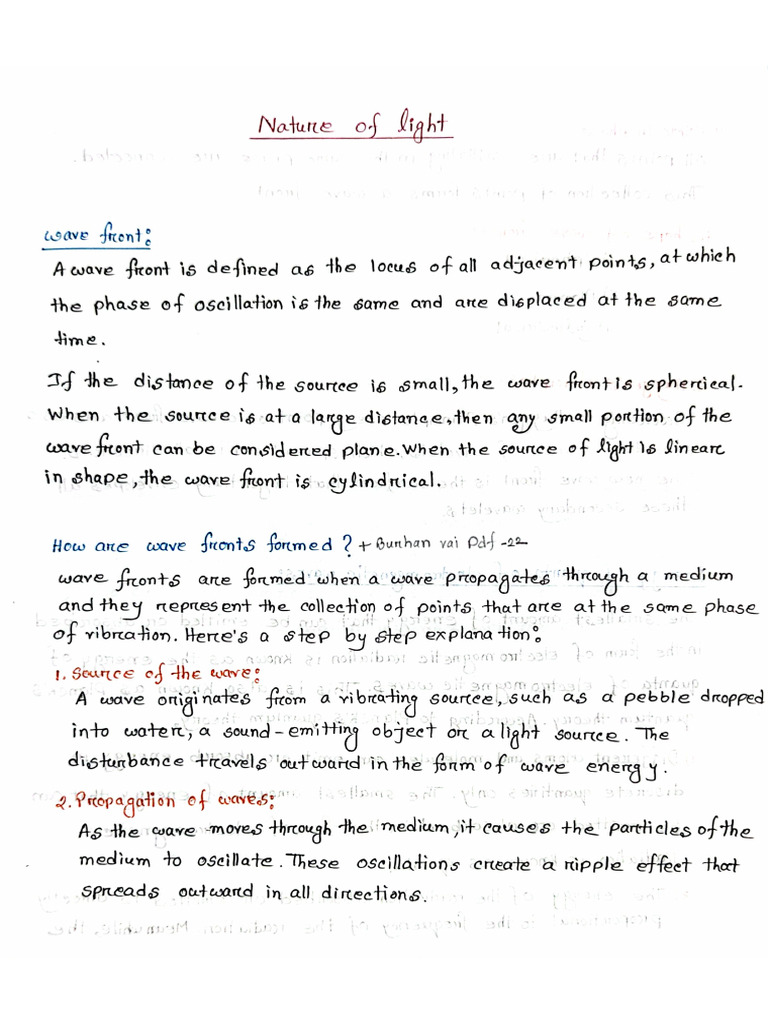 Nature of light
wave front:
A wave front is defined as the locus of all adjacent points, at which
the phase of oscillation is the same and are displaced at the same
time.
If the distance of the source is small, the wave front is spherical.
When the source is at a large distance, then any small portion of the
wave front can be considered plane. When the source of light is linear
in shape, the wave front is cylindrical.
How are wave fronts formed? + Burhan vai Pdf -22
wave fronts are formed when a wave propagates through a medium
and they represent the collection of points that are at the same phase
of vibration. Here's a step by step explanation:
1. Source of the wave:
A wave originates from a vibrating source, such as a pebble dropped
into water, a sound-emitting object or a light source. The
disturbance travels outward in the form of wave energy.
2. Propagation of waves:
As the wave moves through the medium, it causes the particles of the
medium to oscillate. These oscillations create a ripple effect that
spreads outward in all directions.